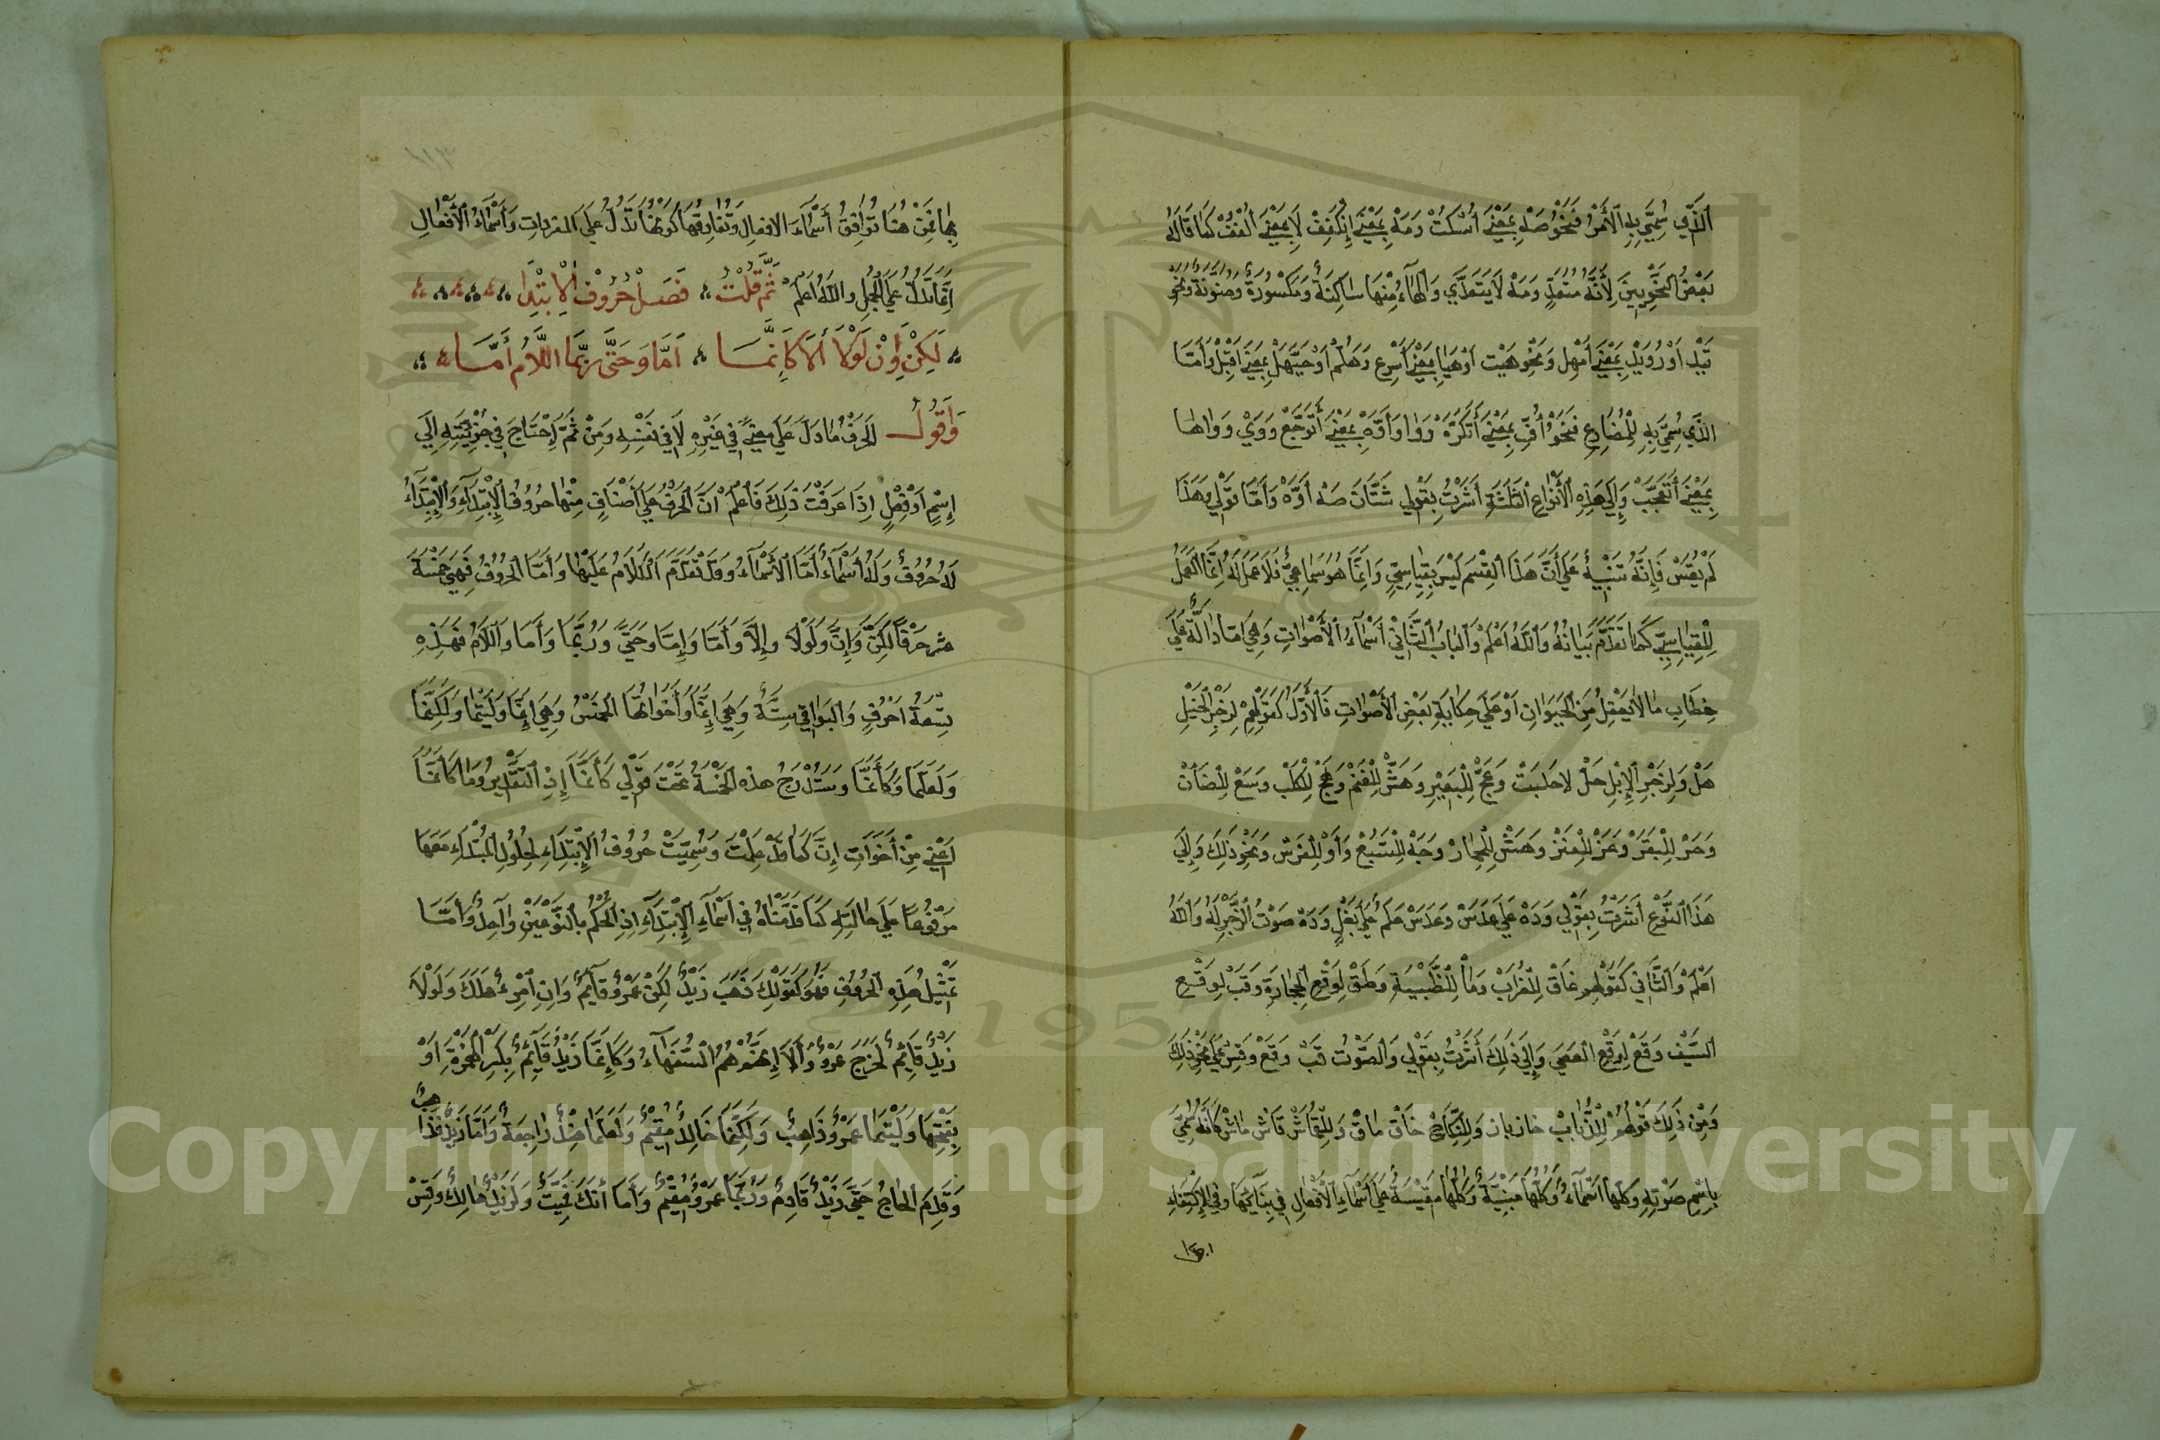 الَّذِي سُمِّيَ بِهِ الْأَمْرُ فَنَحْوُ صَهْ بِمَعْنَى اُسْكُتْ وَمَهْ بِمَعْنَى اِنْكَفِفْ لَا بِمَعْنَى اكْفُفْ كَمَا قَالَهُ
بَعْضُ النَّحْوِيِّينَ لِأَنَّهُ مُتَعَدٍّ وَمَهْ لَا يَتَعَدَّى وَالْهَاءُ مِنْهَا سَاكِنَةٌ وَمَكْسُورَةٌ وَمُنَوَّنَةٌ وَنَحْوُ
تَيْدَ اَوْ رُوَيْدَ بِمَعْنَى أَمْهِلْ وَنَحْوُ هَيْتَ اَوْ هَيَا بِمَعْنَى أَسْرِعْ وَهَلُمَّ اَوْ حَيَّهَلْ بِمَعْنَى اَقْبِلْ وَأَمَّا
الَّذِي سُمِّيَ بِهِ الْمُضَارِعُ فَنَحْوُ أُفٍّ بِمَعْنَى أَتَكَرَّهُ وَوَا وَأَوَّهْ بِمَعْنَى أَتَوَجَّعُ وَوَيْ وَوَاهَا
بِمَعْنَى أَتَعَجَّبُ وَإِلَى هَذِهِ الْأَنْوَاعِ الثَّلَثَةِ أَشَرْتُ بِقَوْلِي شَتَّانَ صَهْ أَوَّهْ وَأَمَّا قَوْلِي وَهَذَا
لَمْ يُقَسْ فَإِنَّهُ تَنْبِيهٌ عَلَى أَنَّ هَذَا الْقِسْمَ لَيْسَ بِقِيَاسِيٍّ وَإِنَّمَا هُوَ سَمَاعِيٌّ فَلَا عَمَلَ لَهُ إِنَّمَا الْعَمَلُ
لِلْقِيَاسِيِّ كَمَا تَقَدَّمَ بَيَانُهُ وَاللَّهُ اَعْلَمْ وَالْبَابُ الثَّانِي أَسْمَاءُ الْأَصْوَاتِ وَهِيَ اِمَّا دَالَّةٌ عَلَى
خِطَابِ مَا لَا يَعْقِلُ مِنَ الْحَيَوَانِ اَوْ عَلَى حِكَايَةِ بَعْضِ الْأَصْوَاتِ فَالْأَوَّلُ كَقَوْلِهِمْ لِزَجْرِ الْخَيْلِ
هَلْ وَلِزَجْرِ الْإِبْلِ حَلْ لَا حَلَبَتْ وَعَجْ لِلْبَعِيرِ وَهَسْ لِلْغَنَمْ وَهَجْ لِلْكَلْبْ وَسَعْ لِلضَانْ
وَحَرْ لِلْبَقَرْ وَعَزْ لِلْعَنْزْ وَهَشْ لِلْحِمَارْ وَجَهْ لِلسَّبُعْ وَأَوْ لِلْفَرَسْ وَنَحْوُ ذَلِكَ وَإِلَى
هَذَا النَّوْعِ أَشَرْتُ بِقَوْلِي وَدَهْ عَلَى عَدَسْ وَعَدَسْ عَلَمٌ عَلَى بَغْلٍ وَدَهْ صَوْتُ الزَّجْرِ لَهُ وَاللَّهُ
اَعْلَمْ وَالثَّانِي كَقَوْلِهِمْ غَاقْ لِلْغُرَابْ وَمَاْ لِلظَّبْيَةِ وَطَقْ لِوَقْعِ الْحِجَارَةِ وَقَبْ لِوَقْعِ
السَّيْفِ وَقَعْ لِوَقْعِ الْعَصَى وَإِلَى ذَلِكَ أَشَرْتُ بِقَوْلِي وَالصَّوْتُ قَبْ وَقَعْ وَقِسْ عَلَى نَحْوِ ذَلِكَ
وَمِنْ ذَلِكَ قَوْلُهُمْ لِلذُّبَابْ خَازِ بَازِ وَلِلنِّكَاحْ خَاقْ مَاقْ وَلِلْقُمَاشْ قَاشْ مَاشْ كَأَنَّهُ سُمِّيَ
بِاسْمِ صَوْتِهِ وَكُلُّهَا أَسْمَاءٌ وَكُلُّهَا مَبْنِيَّةٌ وَكُلُّهَا مَقِيسَةٌ عَلَى أَسْمَاءِ الْأَفْعَالِ فِي بِنَائِهَا وَفِي الْاِكْتِفَاءِ
بِهَا فَمِنْ هُنَا تُوَافِقُ أَسْمَاءَ الافعال وَتُفَارِقُهَا كَوْنُهَا تَدُلُّ عَلَى المفردات وَأَسْمَاءُ الْأَفْعَالِ
إِنَّمَا تَدُلُّ عَلَى الْجُمَلِ وَاللَّهُ اَعْلَمْ ثُمَّ قُلْتُ فَصْلْ حُرُوفُ الْاِبْتِدَا
لَكِنْ وَإِنْ لَوْلَا أَلَا كَإِنَّمَا اَمَا وَحَتَّى رُبَّمَا اللَّامُ أَمَّا
وَاَقُولُ الْحَرْفُ مَا دَلَّ عَلَى مَعْنًى فِي غَيْرِهِ لَا فِي نَفْسِهِ وَمِنْ ثَمَّ اِحْتَاجَ فِي جُزْئِيَّتِهِ اِلَى
اِسْمٍ اَوْ فِعْلٍ اِذَا عَرَفْتَ ذَلِكَ فَاعْلَمْ اَنَّ الْحَرْفَ عَلَى أَصْنَافٍ مِنْهَا حُرُوفُ الْاِبْتِدَاءِ وَالْاِبْتِدَاءُ
لَهُ حُرُوفٌ وَلَهُ أَسْمَاءٌ أَمَّا الْأَسْمَاءُ وَقَدْ تَقَدَّمَ الْكَلَامُ عَلَيْهَا وَأَمَّا الْحُرُوفُ فَهِيَ خَمْسَةَ
عشر حَرْفًا لَكِنْ وَإِنْ وَلَوْلَا وَإِلَّا وَأَمَّا وَإِمَّا وَحَتَّى وَرُبَّمَا وَأَمَا وَاللَّامُ فَهَذِهِ
تِسْعَةُ أَحْرُفٍ وَالْبَوَاقِي سِتَّةٌ وَهِيَ إِنَّمَا وَأَخَوَاتُهَا الْخَمْسُ وَهِيَ إِنَّمَا وَلَيْتَمَا وَلَكِنَّمَا
وَلَعَلَّمَا وَكَأَنَّمَا وَسَتُدْرَجُ هذه الْخَمْسَةُ تَحْتَ قَوْلِي كَأَنَّمَا إِذِ التَّقْدِيرُ وَمَا كَأَنَّمَا
اَعْنِي مِنْ أَخَوَاتِ إِنَّ كَمَا قَدْ عَلِمْتَ وَسُمِّيَتْ حُرُوفُ الْاِبْتِدَاءِ لِحُلُولِ الْمُبْتَدَاءِ مَعَهَا
مَرْفُوعًا عَلَى حَالَتِهِ كَمَا قَدَّمْنَاهُ فِي أَسْمَاءِ الْاِبْتِدَاءِ إِذِ الْحُكْمُ بِالنَّوْعَيْنِ وَاحِدٌ وَأَمَّا
تَمْثِيلُ هَذِهِ الْحُرُوفِ فَهُوَ كَقَوْلِكَ ذَهَبَ زَيْدٌ لَكِنْ عَمْرٌو قَائِمٌ وَإِنِ امْرُءٌ هَلَكَ وَلَوْلَا
زَيْدٌ قَائِمٌ لَخَرَجَ عَمْرٌو وَأَلَا إِنَّهُمْ هُمُ السُّفَهَاءُ وَكَإِنَّمَا زَيْدٌ قَائِمٌ بِكَسْرِ الْهَمْزَةِ اَوْ
بِفَتْحِهَا وَلَيْتَمَا عَمْرٌو ذَاهِبٌ وَلَكِنَّمَا خَالِدٌ مُقِيمٌ وَلَعَلَّمَا هِنْدٌ رَاجِعَةٌ وَأَمَّا زَيْدٌ فَذَاهِبٌ
وَقَدِمَ الْحَاجُّ حَتَّى زَيْدٌ قَادِمٌ وَرُبَّمَا عَمْرٌو مُقِيمٌ وَأَمَا أَنَّكَ مَيِّتٌ وَلَزَيْدٌ هَالِكٌ وَقِسْ
Copyright © King Saud University
1957